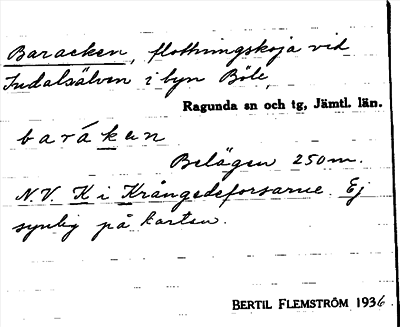 Baracken, flottningskoja vid
Indalsälven i byn Böle,
Ragunda sn och tg, Jämtl. län.
baráken
Belägen 250 m.
N.V. K i Krångedeforsarne. Ej
synlig på kartan.
BERTIL FLEMSTRÖM 1936.